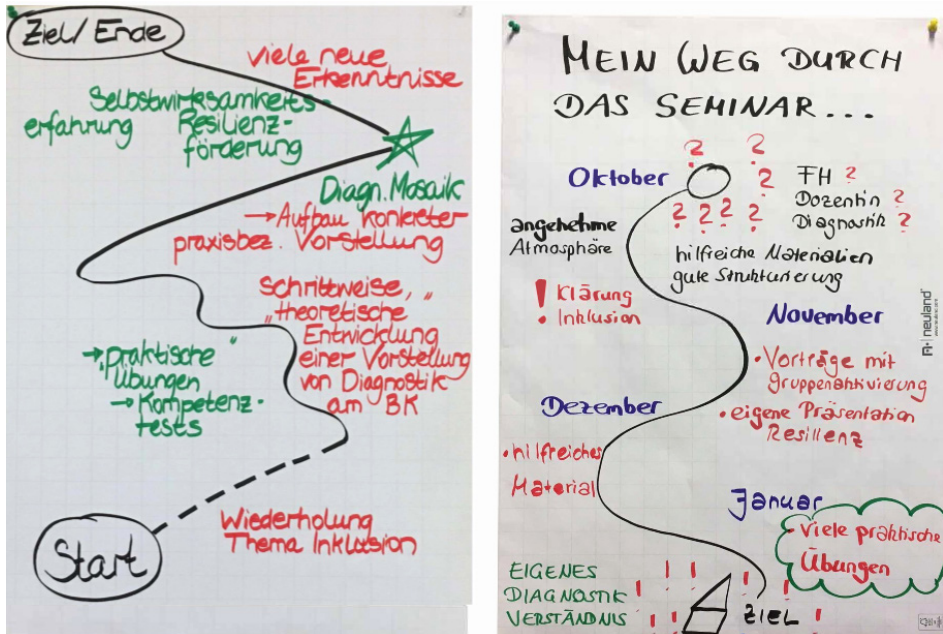 Ziel/Ende
viele neue
Erkenntnisse
Selbstwirksamkeits-
erfahrung Resilienz-
förderung
Diagn. Mosaik
→ Aufbau konkreter
praxisbez. Vorstellung
Schrittweise, "
"theoretische
Entwicklung
einer Vorstellung
von Diagnostik
am BK
→ "praktische"
Übungen
→ Kompetenz-
tests
Wiederholung
Thema Inklusion
Start
MEIN WEG DURCH
DAS SEMINAR...
? ?
Oktober ? FH ?
? ? ? ? Dozentin ?
Diagnostik ?
angenehme
Atmosphäre
hilfreiche Materialien
gute Strukturierung
! Klärung
Inklusion
November
• Vorträge mit
gruppenaktivierung
• eigene Präsentation
Resilienz
Dezember
• hilfreiches
Material
Januar
• viele praktische
Übungen
EIGENES
DIAGNOSTIK
VERSTÄNDNIS
! ! ! ! ! ! ! !
ZIEL
neuland